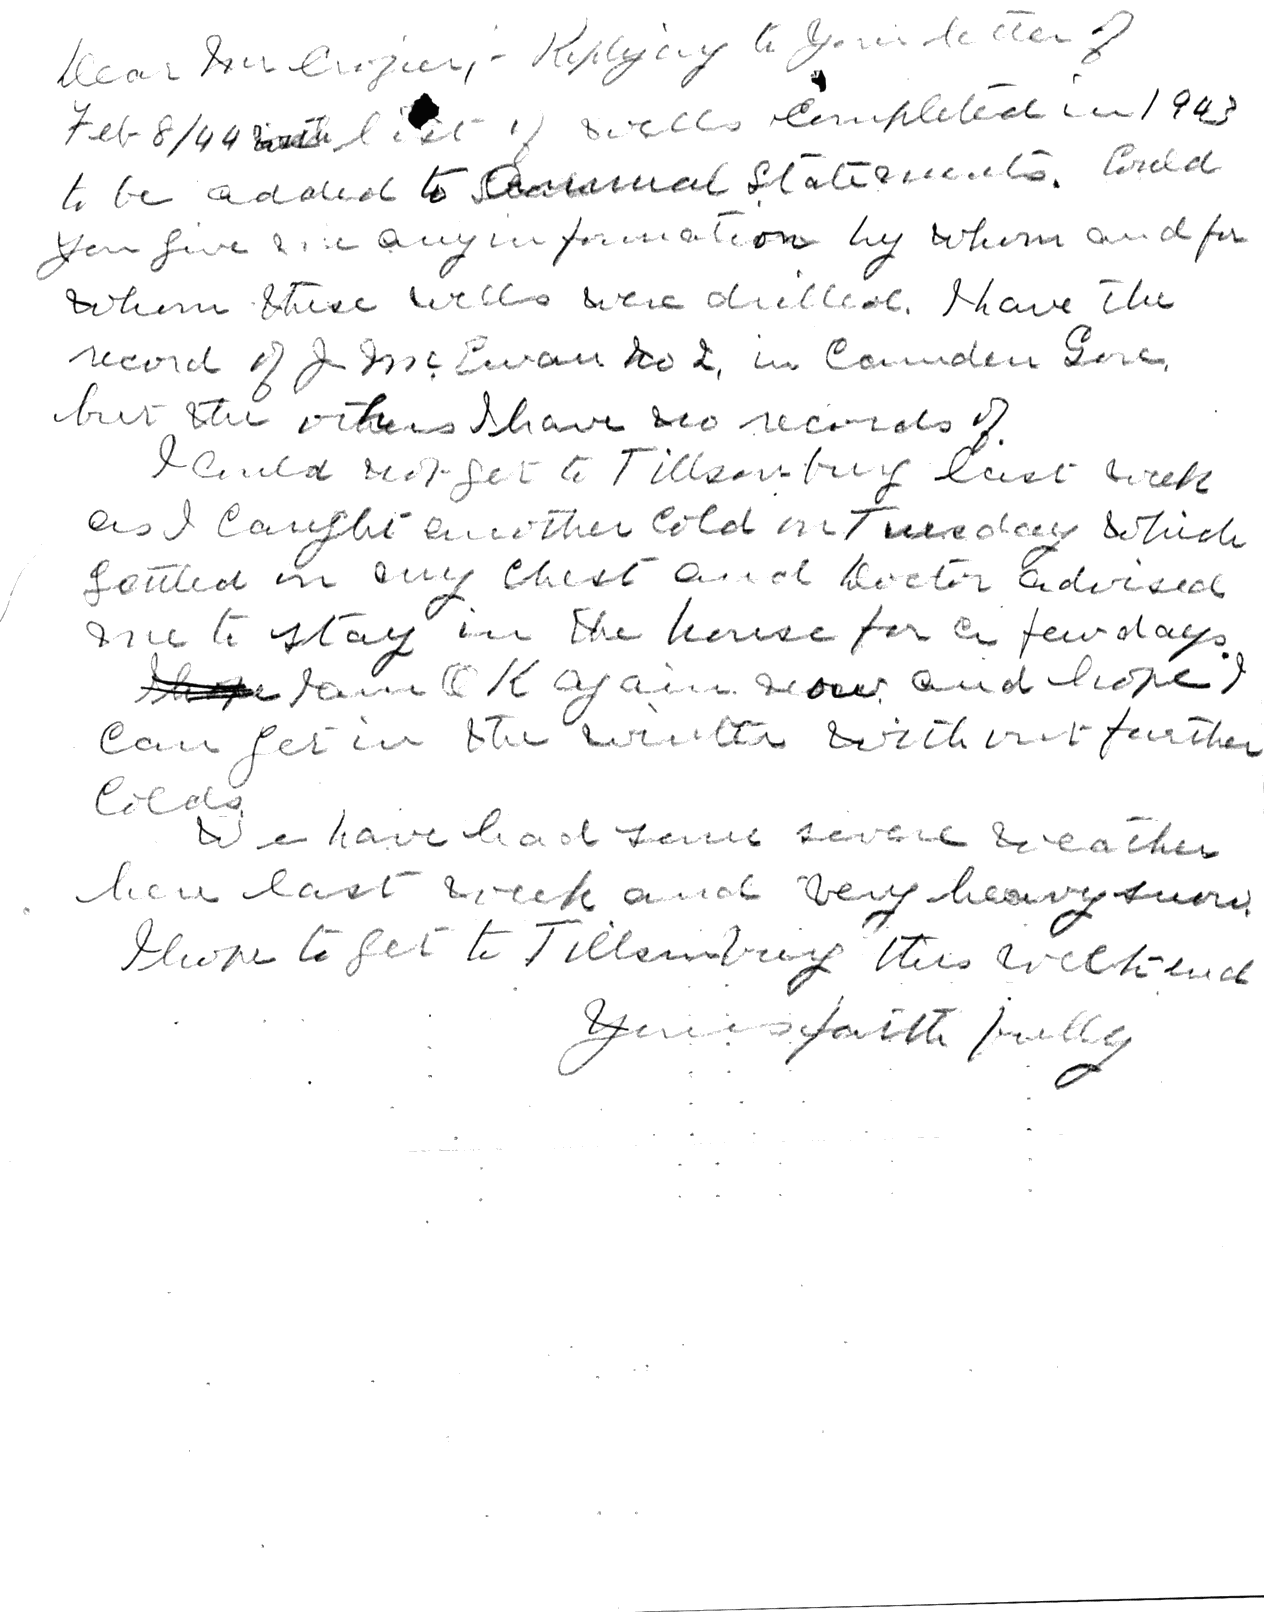 Dear Mr Crozier,- Replying to Your letter of
Feb 8/44 with list of wells Completed in 1943
to be added to Annual Statements. Could
you give me any information by whom and for
whom these wells were drilled. I have the
record of J Mc Ewan No 2, in Camden Gore,
but the others I have no records of.
I Could not get to Tillsonburg last week
as I Caught another Cold on Tuesday which
Settled on my Chest and Doctor advised
me to stay in the house for a few days.
I hope I am O K again now. and hope I
Can get in the winter without further
Colds.
We have had some severe weather
here last week and very heavy snow.
I hope to get to Tillsonburg this week end
Yours faithfully